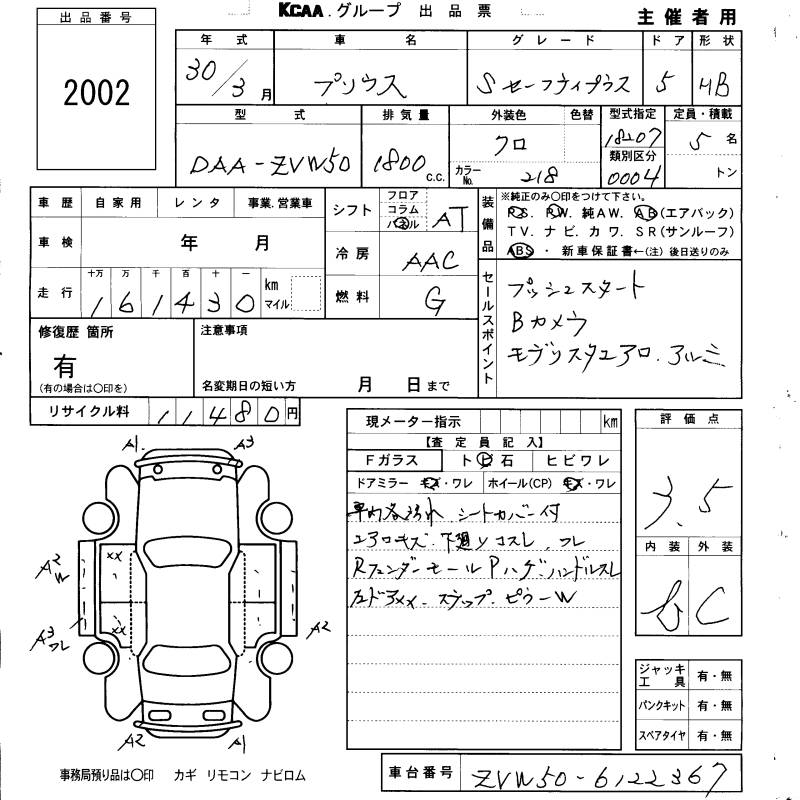 KCAA.グループ 出品票
主催者用
出品番号
2002
年式 車名 グレード ドア 形状
30/3月 プリウス Sセーフティプラス 5 HB
型式 排気量 外装色 色替 型式指定 定員・積載
DAA-ZVW50 1800c.c. クロ 18207 5名
カラーNo. 218 類別区分 0004 トン
車歴 自家用 レンタ 事業.営業車
シフト フロア コラム パネル AT
装備品 ※純正のみ〇印をつけて下さい。
P.S. P.W. 純AW. AB(エアバック)
TV. ナビ. カワ. SR(サンルーフ)
ABS・新車保証書←(注) 後日送りのみ
車検 年 月
冷房 AAC
走行 十万 万 千 百 十 一
161430 km マイル
燃料 G
セールスポイント
プッシュスタート
Bカメラ
モデリスタエアロ.アルミ
修復歴 箇所
有
(有の場合は〇印を)
注意事項
名変期日の短い方 月 日まで
リサイクル料 11480円
現メーター指示 km
【査定員記入】
Fガラス ト ビ 石 ヒビワレ
ドアミラー キズ・ワレ ホイール(CP) キズ・ワレ
車内各汚れ シートカバー付
エアロキズ.下廻りコスレ.ワレ
Rフェンダーモール Pハゲ.ハンドルスレ
左ドアxx.ステップ.ピラーW
評価点
3.5
内装 外装
b C
A1 A3
xx
A2
W
A3
ワレ
xx
A2
A2 A1
ジャッキ工具 有・無
パンクキット 有・無
スペアタイヤ 有・無
事務局預り品は〇印 カギ リモコン ナビロム
車台番号 ZVW50-6122367